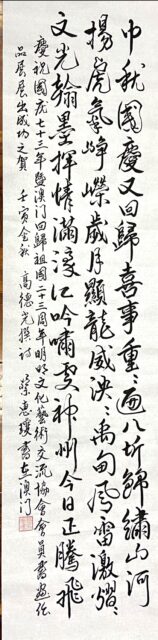 中秋國慶又回歸喜事重〻遍八圻錦繡山河
揚虎氣崢嶸歲月顯龍威泱〻禹甸風雷激熠〻
文光翰墨揮情滿濠江吟嘯神州今日正騰飛
慶祝國慶七十三年暨澳門回歸祖國二十三周年明明文化藝術交流協會會員書畫作
品展展出成功之賀 壬寅金秋 高德光撰詩 蔡惠瓊書在澳門